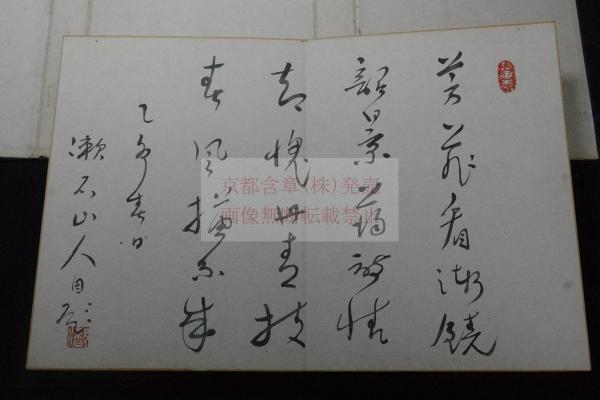 芳菲看漸饒
韶景蕩詩情
却愧丹青技
春風描不成
乙卯春日
漱石山人自題
京都含章(株)発売
画像無断転載禁止